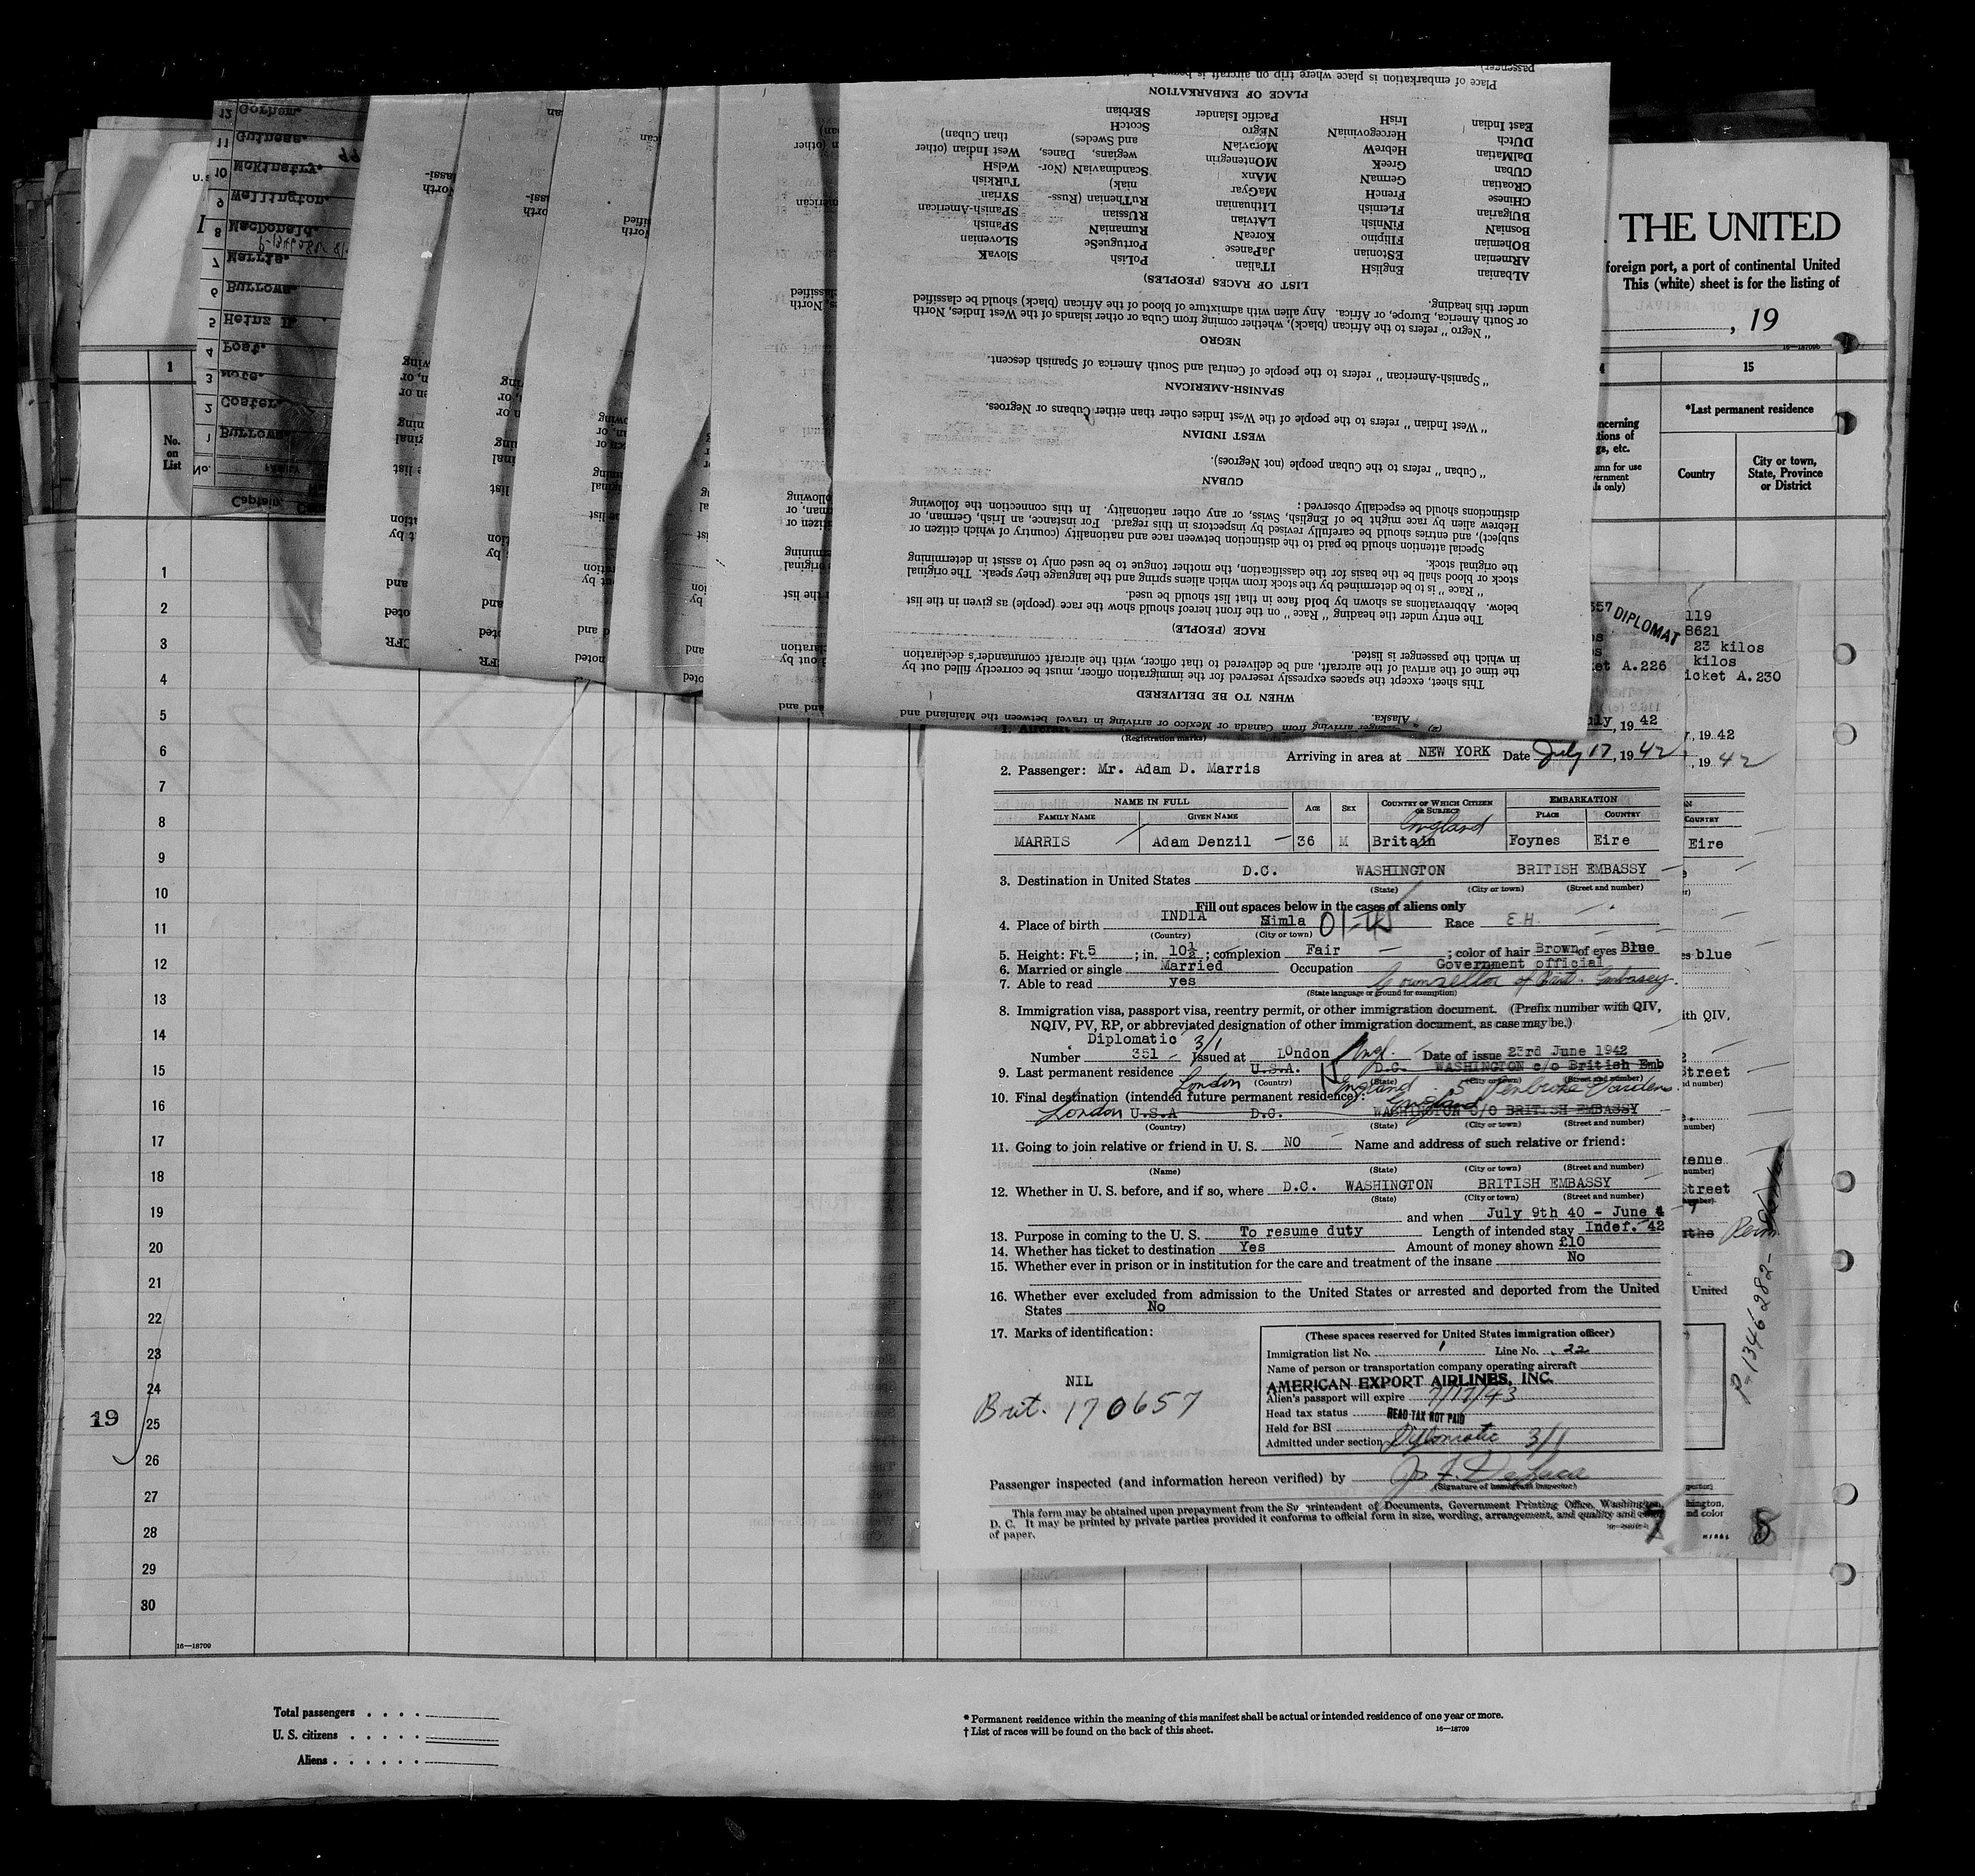 THE UNITED
foreign port, a port of continental United
This (white) sheet is for the listing of
, 19
16—18709
1
15
*Last permanent residence
No.
on
List
Country
City or town,
State, Province
or District
passenger)
Place of embarkation is place where trip on aircraft is
PLACE OF EMBARKATION
East Indian IrisH Pacific Islander SErbian
DUtch HercegoviniaN NEgro ScotcH than Cuban)
DalMatian HebreW MoraviaN and Swedes) West Indian (other
CUban GreeK MOntenegrin wegians, Danes, WelsH
CRoatian GermaN MAnx ScandinaviaN (Nor- TuRkish
CHinese FrencH MaGyar niak) SYrian
BUlgarian FLemish LIthuanian RuThenian (Russ- SPanisH-American
BosniaN FiNnish LAtvian RUssian SPanish
BOhemian FIlipino KoreaN RumaniaN SLOvenian
ARmenian EStonian JaPanese PortugueSe SlovaK
ALbanian EnglisH ITalian PoLish
LIST OF RACES (PEOPLES)
under this heading.
or South America, Europe, or Africa. Any alien with admixture of blood of the African (black) should be classified
"Negro" refers to the African (black), whether coming from Cuba or other islands of the West Indies, North
NEGRO
"Spanish-American" refers to the people of Central and South America of Spanish descent.
SPANISH-AMERICAN
"West Indian" refers to the people of the West Indies other than either Cubans or Negroes.
WEST INDIAN
"Cuban" refers to the Cuban people (not Negroes).
CUBAN
distinctions should be especially observed:
Hebrew alien by race might be of English, Swiss, or any other nationality. In this connection the following
subject), and entries should be carefully revised by inspectors in this regard. For instance, an Irish, German, or
Special attention should be paid to the distinction between race and nationality (country of which citizen or
the original stock.
stock or blood shall be the basis for the classification, the mother tongue to be used only to assist in determining
"Race" is to be determined by the stock from which aliens spring and the language they speak. The original
below. Abbreviations as shown by bold face in that list should be used.
The entry under the heading "Race" on the front hereof should show the race (people) as given in the list
RACE (PEOPLE)
in which the passenger is listed.
the time of the arrival of the aircraft, and be delivered to that officer, with the aircraft commander's declaration
This sheet, except the spaces expressly reserved for the immigration officer, must be correctly filled out by
WHEN TO BE DELIVERED
Alaska.
passenger arriving from Canada or Mexico or arriving in travel between the Mainland and
12 Gorhem.
11 Gutness.
10 McKinstry.
9 Wellington.
8 MacDonald.
7 Marris.
6 Burrows.
5 Heinz II.
4 Post.
3 Mote.
2 Coster.
1 Burrows.
No. FAMILY
Captain
357 DIPLOMAT
119
8621
23 kilos
kilos
et A.226
icket A.230
uly, 19 42
, 19 42
, 19 42
1. Aircraft
(Registration marks)
Arriving in area at NEW YORK Date July 17, 19 42
2. Passenger: Mr. Adam D. Marris
NAME IN FULL
FAMILY NAME GIVEN NAME
AGE SEX COUNTRY OF WHICH CITIZEN OR SUBJECT
EMBARKATION
PLACE COUNTRY
England
MARRIS Adam Denzil 36 M Britain Foynes Eire
Eire
3. Destination in United States D.C. WASHINGTON BRITISH EMBASSY
(State) (City or town) (Street and number)
Fill out spaces below in the cases of aliens only
4. Place of birth INDIA Simla Race E.H.
(Country) (City or town)
5. Height: Ft. 5; in. 10½; complexion Fair; color of hair Brown of eyes Blue
blue
6. Married or single Married Occupation Government official
7. Able to read yes Counsellor of Brit. Embassy.
(State language or ground for exemption)
8. Immigration visa, passport visa, reentry permit, or other immigration document. (Prefix number with QIV,
NQIV, PV, RP, or abbreviated designation of other immigration document, as case may be.)
Diplomatic 3/1
Number 351 Issued at London Engl. Date of issue 23rd June 1942
9. Last permanent residence U.S.A. D.C. WASHINGTON c/o British Emb
(Country) (State) (City or town) (Street and number)
London England 5 Pembroke Gardens.
10. Final destination (intended future permanent residence):
London U.S.A D.C. England WASHINGTON C/O BRITISH EMBASSY
(Country) (State) (City or town) (Street and number)
11. Going to join relative or friend in U. S. NO Name and address of such relative or friend:
(Name) (State) (City or town) (Street and number)
12. Whether in U. S. before, and if so, where D.C. WASHINGTON BRITISH EMBASSY
(State) (City or town) (Street and number)
and when July 9th 40 - June 4
13. Purpose in coming to the U. S. To resume duty Length of intended stay Indef. 42
14. Whether has ticket to destination Yes Amount of money shown £10
15. Whether ever in prison or in institution for the care and treatment of the insane No
16. Whether ever excluded from admission to the United States or arrested and deported from the United
States No
17. Marks of identification:
NIL
Brit. 170657
(These spaces reserved for United States immigration officer)
Immigration list No. 1 Line No. 22
Name of person or transportation company operating aircraft
AMERICAN EXPORT AIRLINES, INC.
Alien's passport will expire 7/17/43
Head tax status HEAD TAX NOT PAID
Held for BSI
Admitted under section Diplomatic 3/1
Passenger inspected (and information hereon verified) by Jos F. DeLuca
(Signature of Immigrant Inspector)
This form may be obtained upon prepayment from the Superintendent of Documents, Government Printing Office, Washington,
D. C. It may be printed by private parties provided it conforms to official form in size, wording, arrangement, and quality and color
of paper.
7
8
P-1346282-
1
2
3
4
5
6
7
8
9
10
11
12
13
14
15
16
17
18
19
20
21
22
23
24
19 25
26
27
28
29
30
16—18709
Total passengers . . . .
U. S. citizens . . . . .
Aliens . . . . . .
* Permanent residence within the meaning of this manifest shall be actual or intended residence of one year or more.
† List of races will be found on the back of this sheet.
16—18709